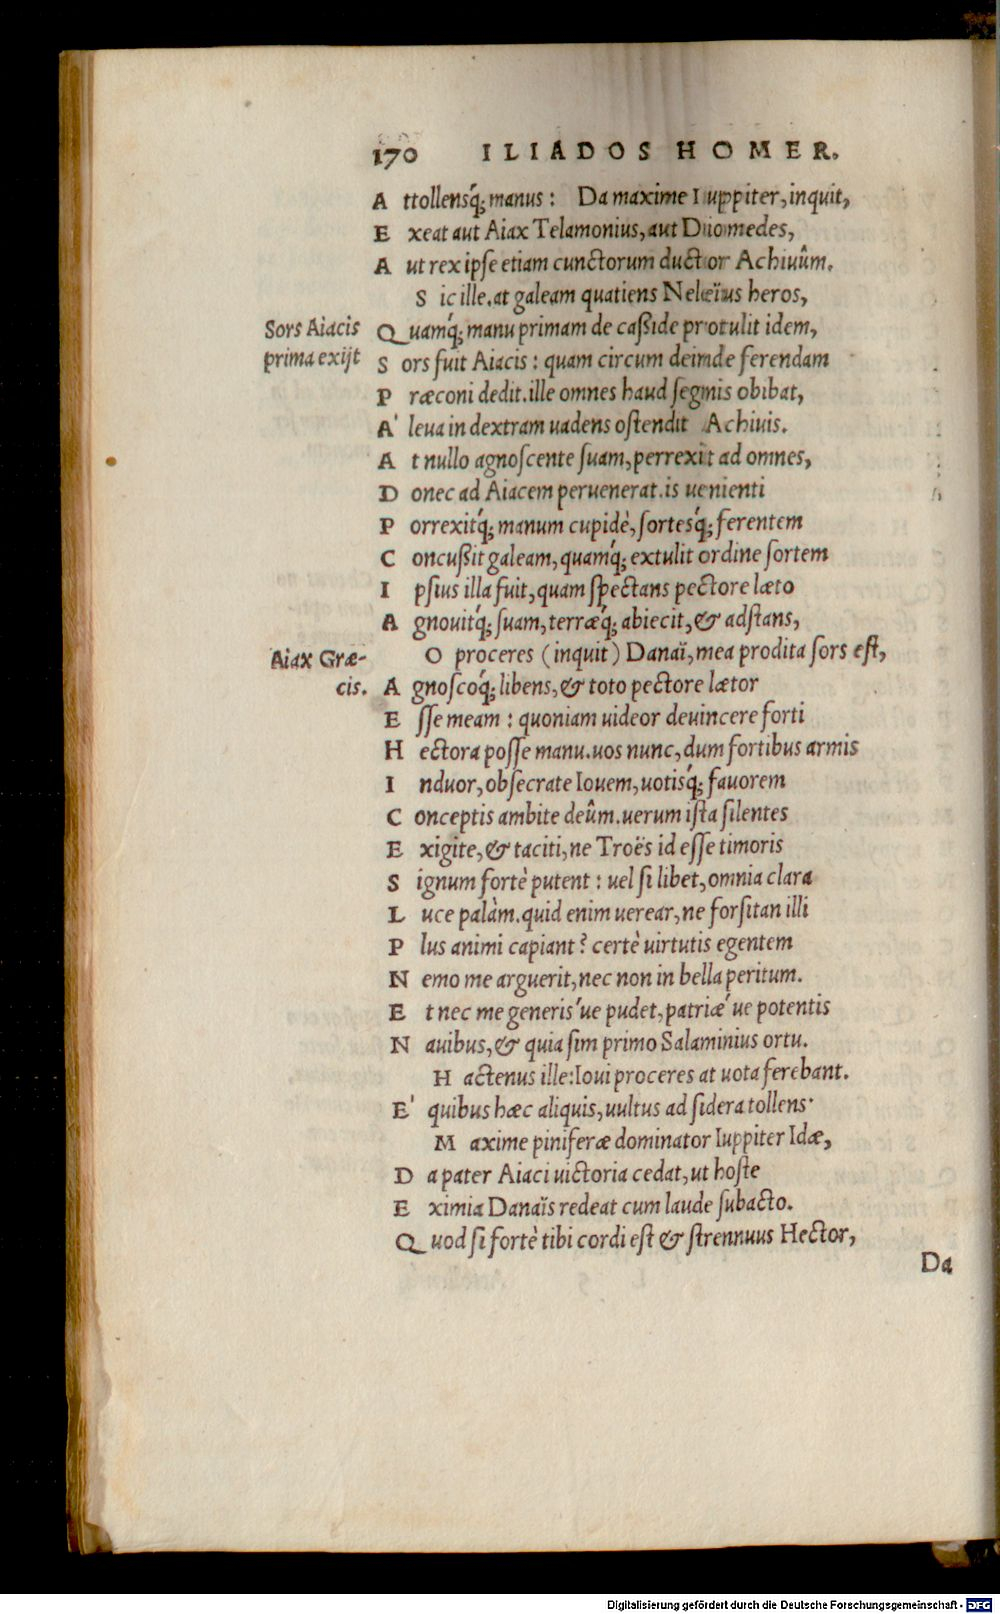 170 ILIADOS HOMER.
Attollensq́; manus: Da maxime Iuppiter, inquit,
Exeat aut Aiax Telamonius, aut Diomedes,
Aut rex ipſe etiam cunctorum ductor Achiuûm.
Sic ille. at galeam quatiens Neleïus heros,
Sors Aiacis
prima exijt
Quamq́; manu primam de caßide protulit idem,
Sors fuit Aiacis: quam circum deinde ferendam
Præconi dedit. ille omnes haud ſegnis obibat,
A' leua in dextram uadens oſtendit Achiuis.
At nullo agnoſcente ſuam, perrexit ad omnes,
Donec ad Aiacem peruenerat. is uenienti
Porrexitq́; manum cupidè, ſortesq́; ferentem
Concußit galeam, quamq́; extulit ordine ſortem
Ipſius illa fuit, quam ſpectans pectore læto
Agnouitq́; ſuam, terræq́; abiecit, & adſtans,
Aiax Græ-
cis.
O proceres (inquit) Danaï, mea prodita ſors eſt,
Agnoſcoq́; libens, & toto pectore lætor
Eſſe meam: quoniam uideor deuincere forti
Hectora poſſe manu. uos nunc, dum fortibus armis
Induor, obſecrate Iouem, uotisq́; fauorem
Conceptis ambite deûm. uerum iſta ſilentes
Exigite, & taciti, ne Troës id eſſe timoris
Signum fortè putent: uel ſi libet, omnia clara
Luce palàm. quid enim uerear, ne forſitan illi
Plus animi capiant? certè uirtutis egentem
Nemo me arguerit, nec non in bella peritum.
Et nec me generis 'ue pudet, patriæ 'ue potentis
Nauibus, & quia ſim primo Salaminius ortu.
Hactenus ille: Ioui proceres at uota ferebant.
E' quibus hæc aliquis, uultus ad ſidera tollens·
Maxime piniferæ dominator Iuppiter Idæ,
Da pater Aiaci uictoria cedat, ut hoſte
Eximia Danaïs redeat cum laude ſubacto.
Quod ſi fortè tibi cordi eſt & ſtrennuus Hector,
Da
Digitalisierung gefördert durch die Deutsche Forschungsgemeinschaft - DFG